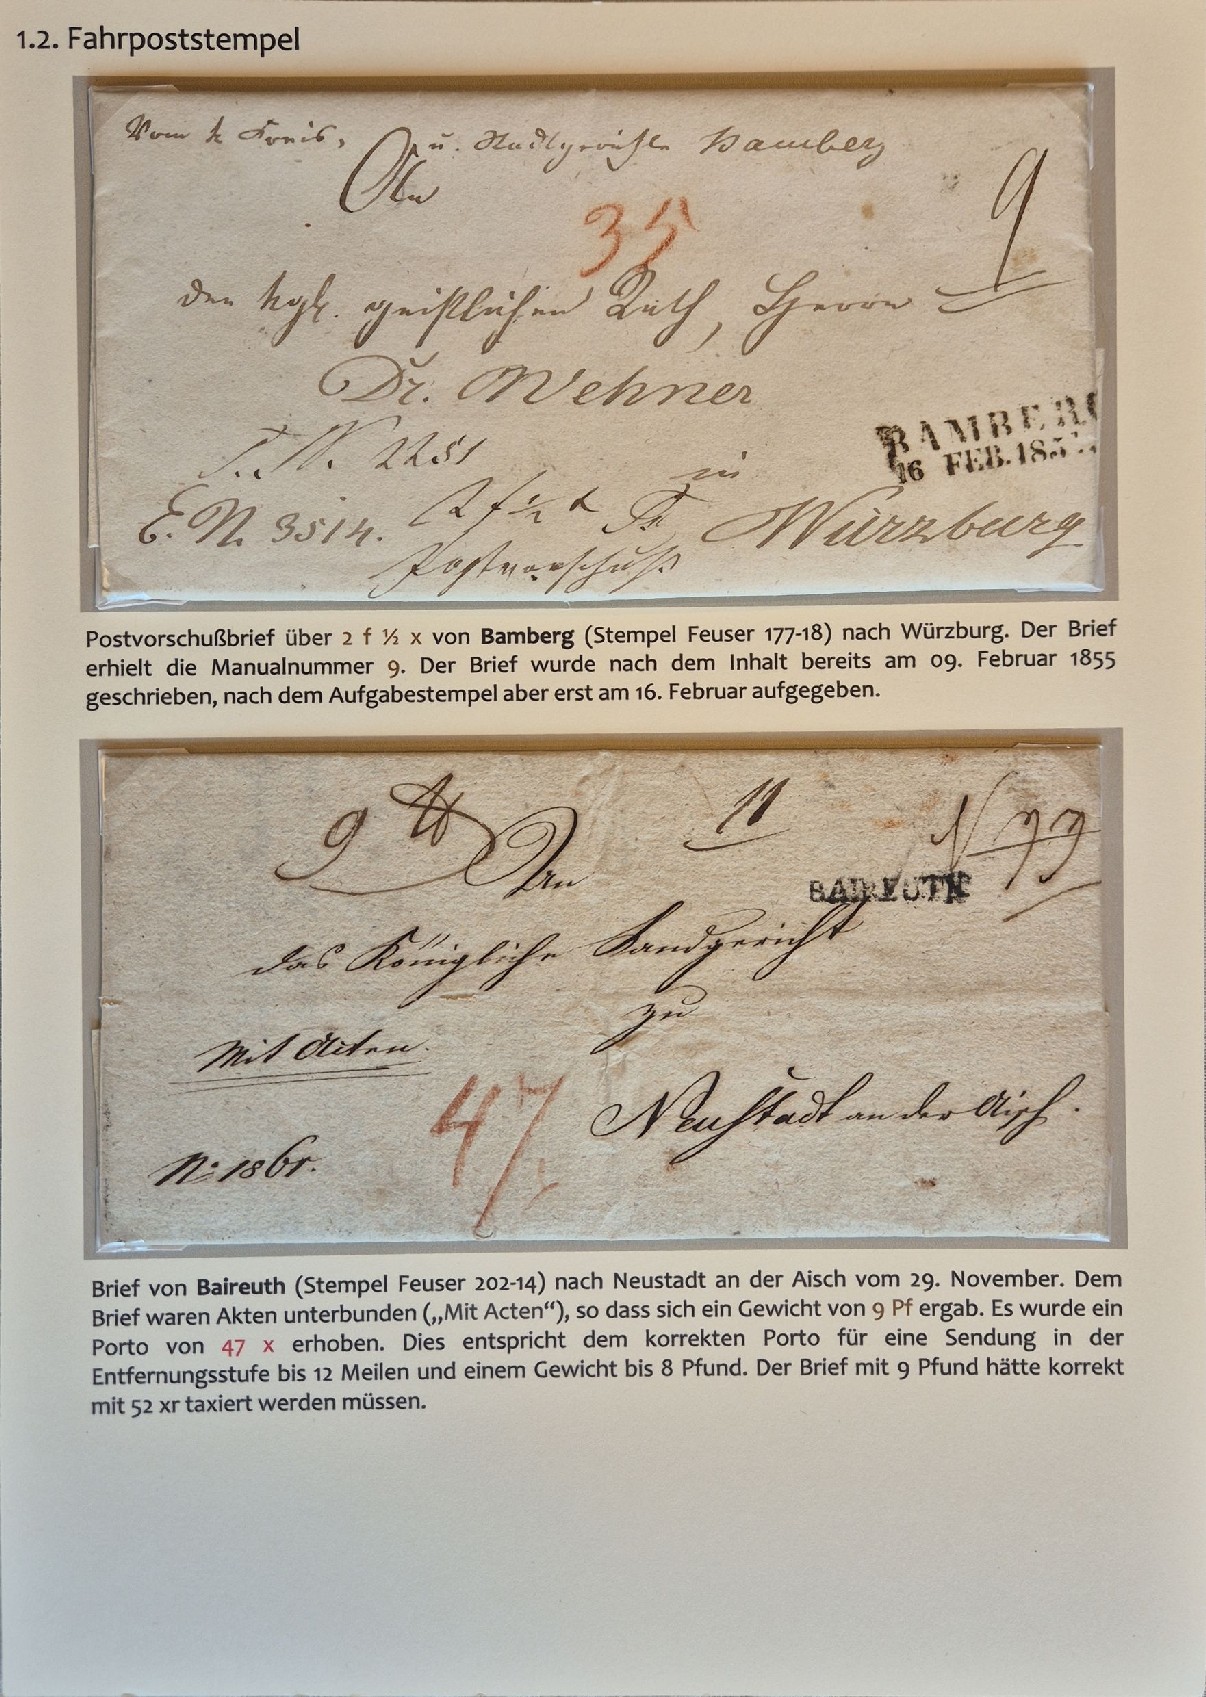 1.2. Fahrpoststempel
Vom k Kreis- u. Stadtgerichte Bamberg
An
9
35
den kgl. geistlichen Rath, Herrn
Dr. Wehner
BAMBERG
16 FEB. 185
T. N. 2251
in
E. N. 3514. 2 f ½ x
Würzburg
Postvorschuß
Postvorschußbrief über 2 f ½ x von Bamberg (Stempel Feuser 177-18) nach Würzburg. Der Brief
erhielt die Manualnummer 9. Der Brief wurde nach dem Inhalt bereits am 09. Februar 1855
geschrieben, nach dem Aufgabestempel aber erst am 16. Februar aufgegeben.
9 11
An
BAIREUTH
das Königliche Landgericht
zu
Mit Acten.
47
Neustadt an der Aisch.
Brief von Baireuth (Stempel Feuser 202-14) nach Neustadt an der Aisch vom 29. November. Dem
Brief waren Akten unterbunden („Mit Acten“), so dass sich ein Gewicht von 9 Pf ergab. Es wurde ein
Porto von 47 x erhoben. Dies entspricht dem korrekten Porto für eine Sendung in der
Entfernungsstufe bis 12 Meilen und einem Gewicht bis 8 Pfund. Der Brief mit 9 Pfund hätte korrekt
mit 52 xr taxiert werden müssen.